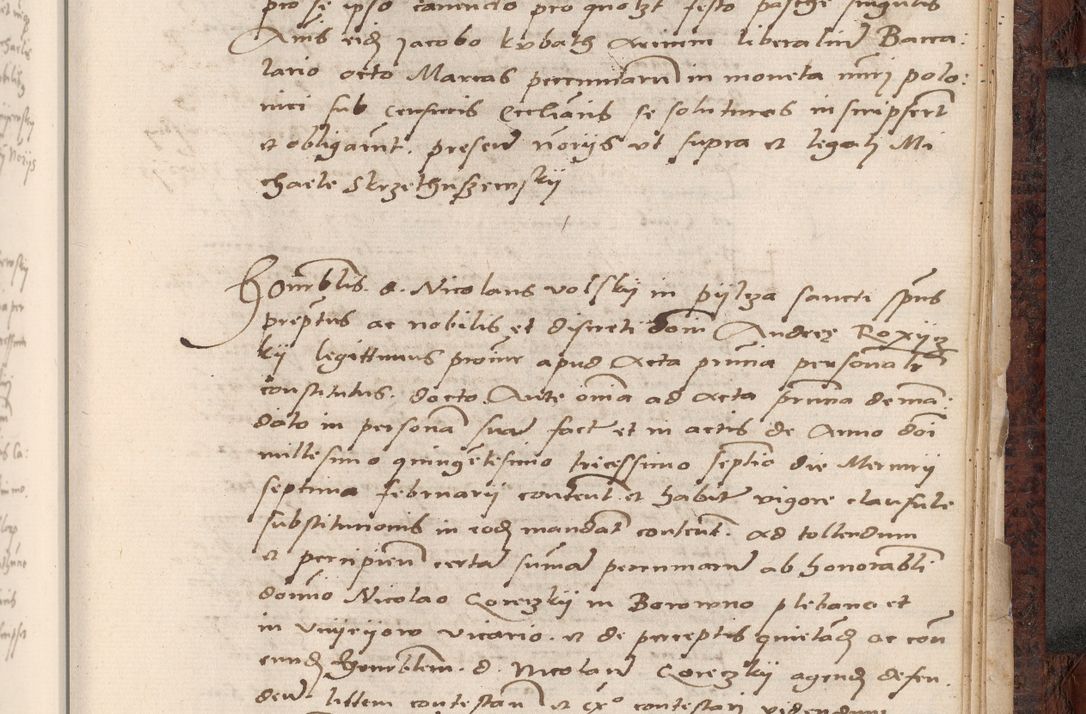 pro se ipso canendo pro quolzt festo pasche singulis
Anis eidz Jacobo kvbath Arcium liberaliu Bacca:
lario octo Marcas pecuniaru in moneta nuri polo:
nici sub censuris Ecclianis se soluturos inscripsert
et obligarut. presen noriis vt supra et legali Mi
chaele Skrzethuszewsky
Honorablis. d. Nicolaus volsky in pylcza sancti spus
preptus ac nobilis et discreti domi Andreę Roxiycz
kij legittimus procur apud Acta pntia personalr
constitutus. docto. Ante omia ad Acta pntia de man:
dato in persona sua fact et in actis de Anno doi
millesimo quingetesimo tricessimo septio die Mercurij
septima februarij content et habit vigore clausule
substitutionis in eodz mandat content. ad tollendum
et percipien certa suma pecuniaru ab honorabli
domino Nicolao Goreczkij in Borowno plebano et
in vnijeijow vicario. et de perceptis quietadz ac con
eundz Honorblem. d. Nicolau Goreczkij agendz defen.
den littem contestan et exo contestari videndum